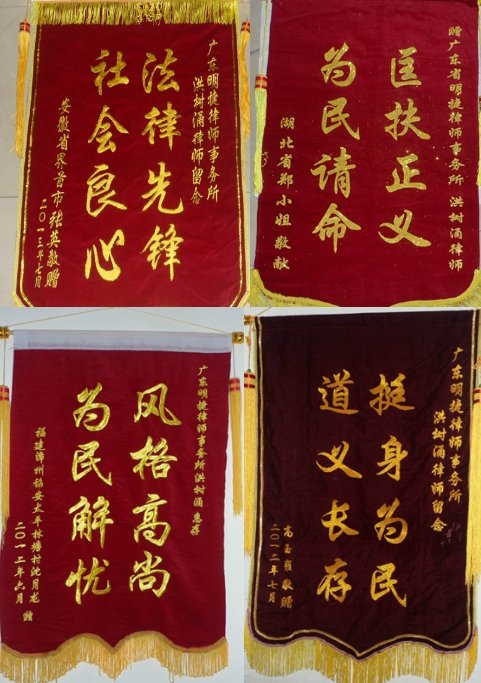 广东明捷律师事务所
洪树涌律师留念
法律先锋
社会良心
安徽省界首市张英敬赠
二〇一三年七月
赠广东省明捷律师事务所 洪树涌律师
匡扶正义
为民请命
湖北省郑小姐敬献
广东明捷律师事务所洪树涌惠存
风格高尚
为民解忧
福建漳州诏安太平林塘村沈月龙
二〇一二年六月 赠
广东明捷律师事务所
洪树涌律师留念
挺身为民
道义长存
高玉雁敬赠
二〇一二年七月